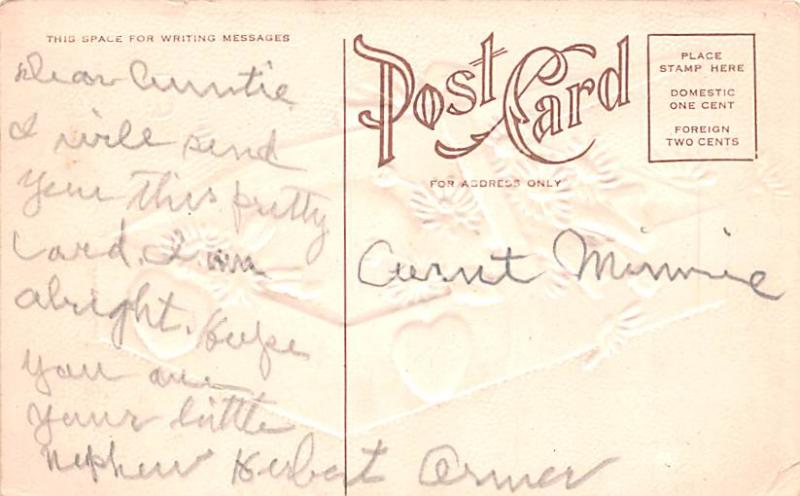 THIS SPACE FOR WRITING MESSAGES
Dear Auntie
I will send
you this pretty
card. I am
alright. hope
you are
your little
nephew Herbert Armer
POST CARD
FOR ADDRESS ONLY
PLACE
STAMP HERE
DOMESTIC
ONE CENT
FOREIGN
TWO CENTS
Aunt Minnie